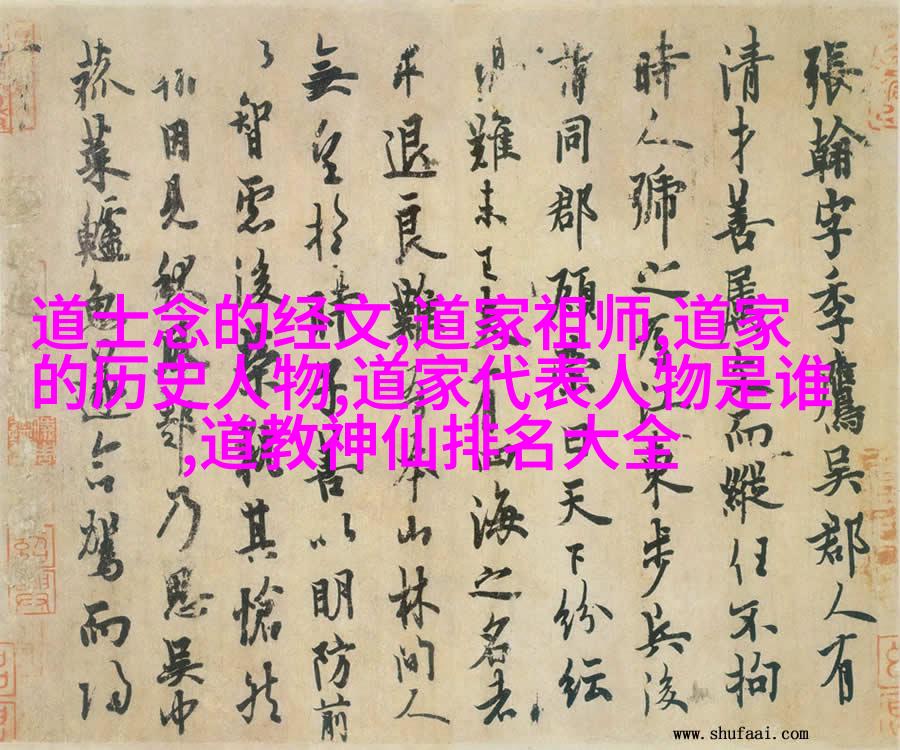 張翰字季鷹吳郡人有
清才善屬文而縱任不拘
時人號之為江東步兵後
謂同郡顧榮曰天下紛紜
禍難未已夫有四海之名者
求退良難吾本山林間人
無望於時子善以明防前
以智慮後榮執其愴然
翰因見秋風起乃思吳中
菰菜鱸魚遂命駕而歸
道士念的经文,道家祖师,道家
的历史人物,道家代表人物是谁
,道教神仙排名大全
www.shufaai.com